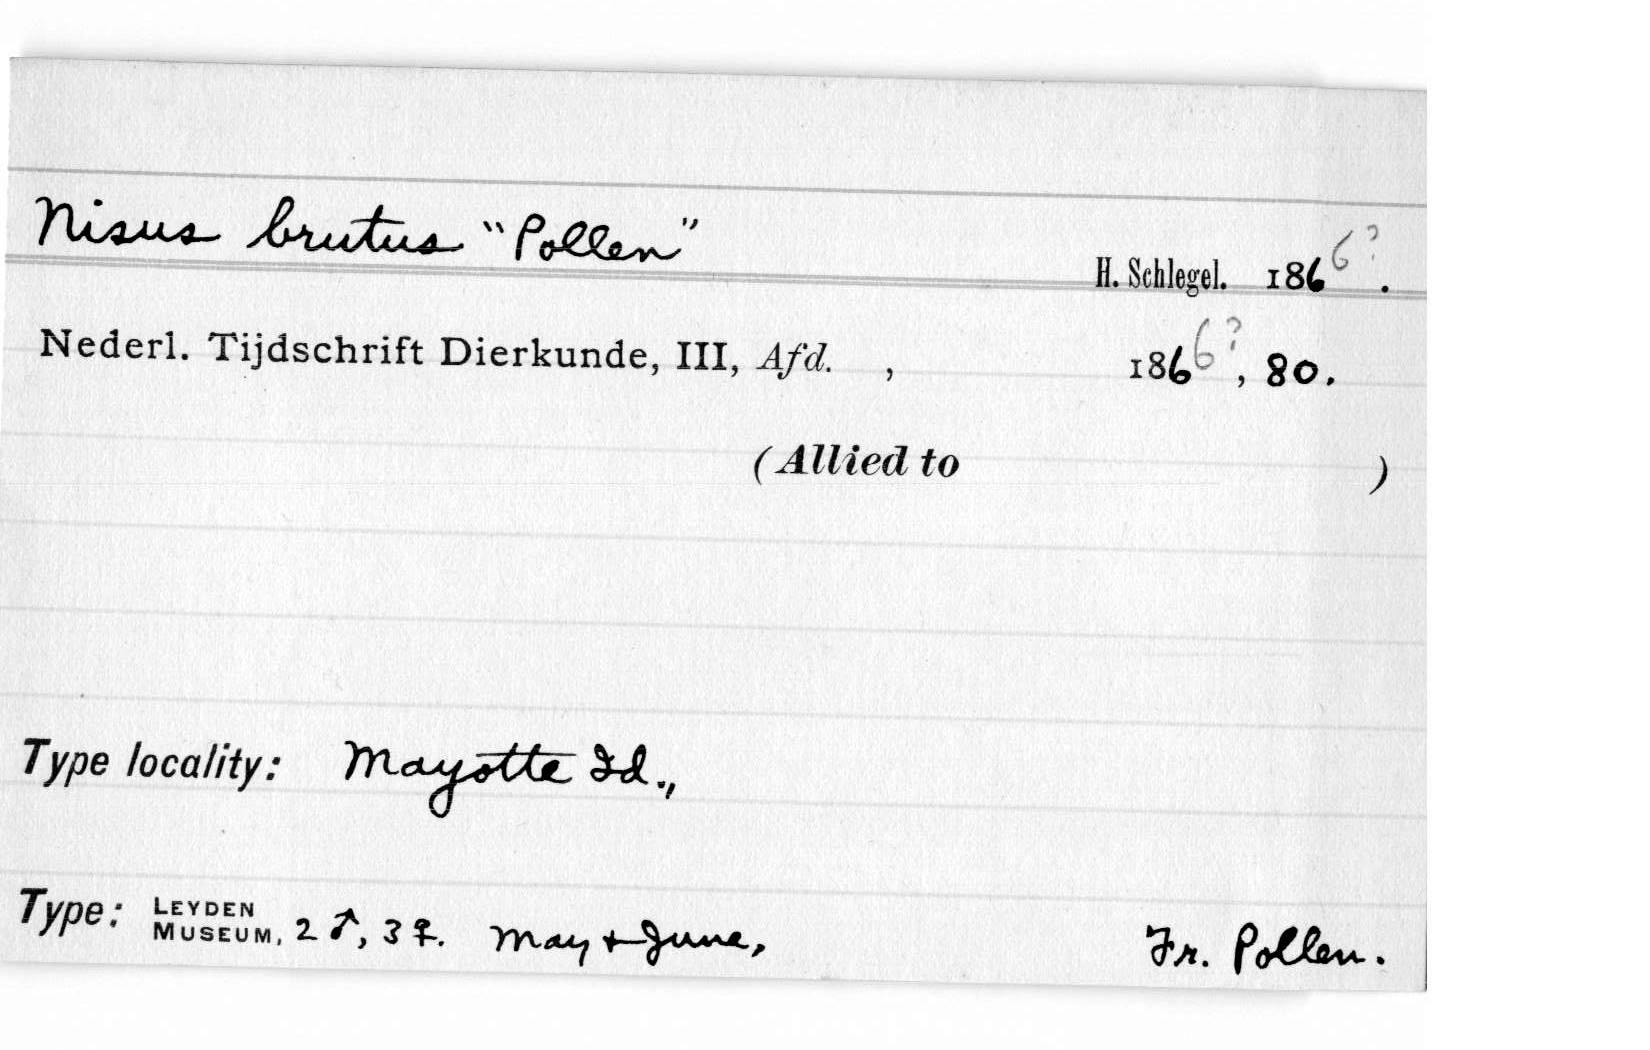 Nisus brutus "Pollen"
H. Schlegel. 1866?.
Nederl. Tijdschrift Dierkunde, III, Afd. , 1866?, 80.
(Allied to )
Type locality: Mayotte Id.,
Type: LEYDEN MUSEUM, 2♂, 3♀. May + June, Fr. Pollen.